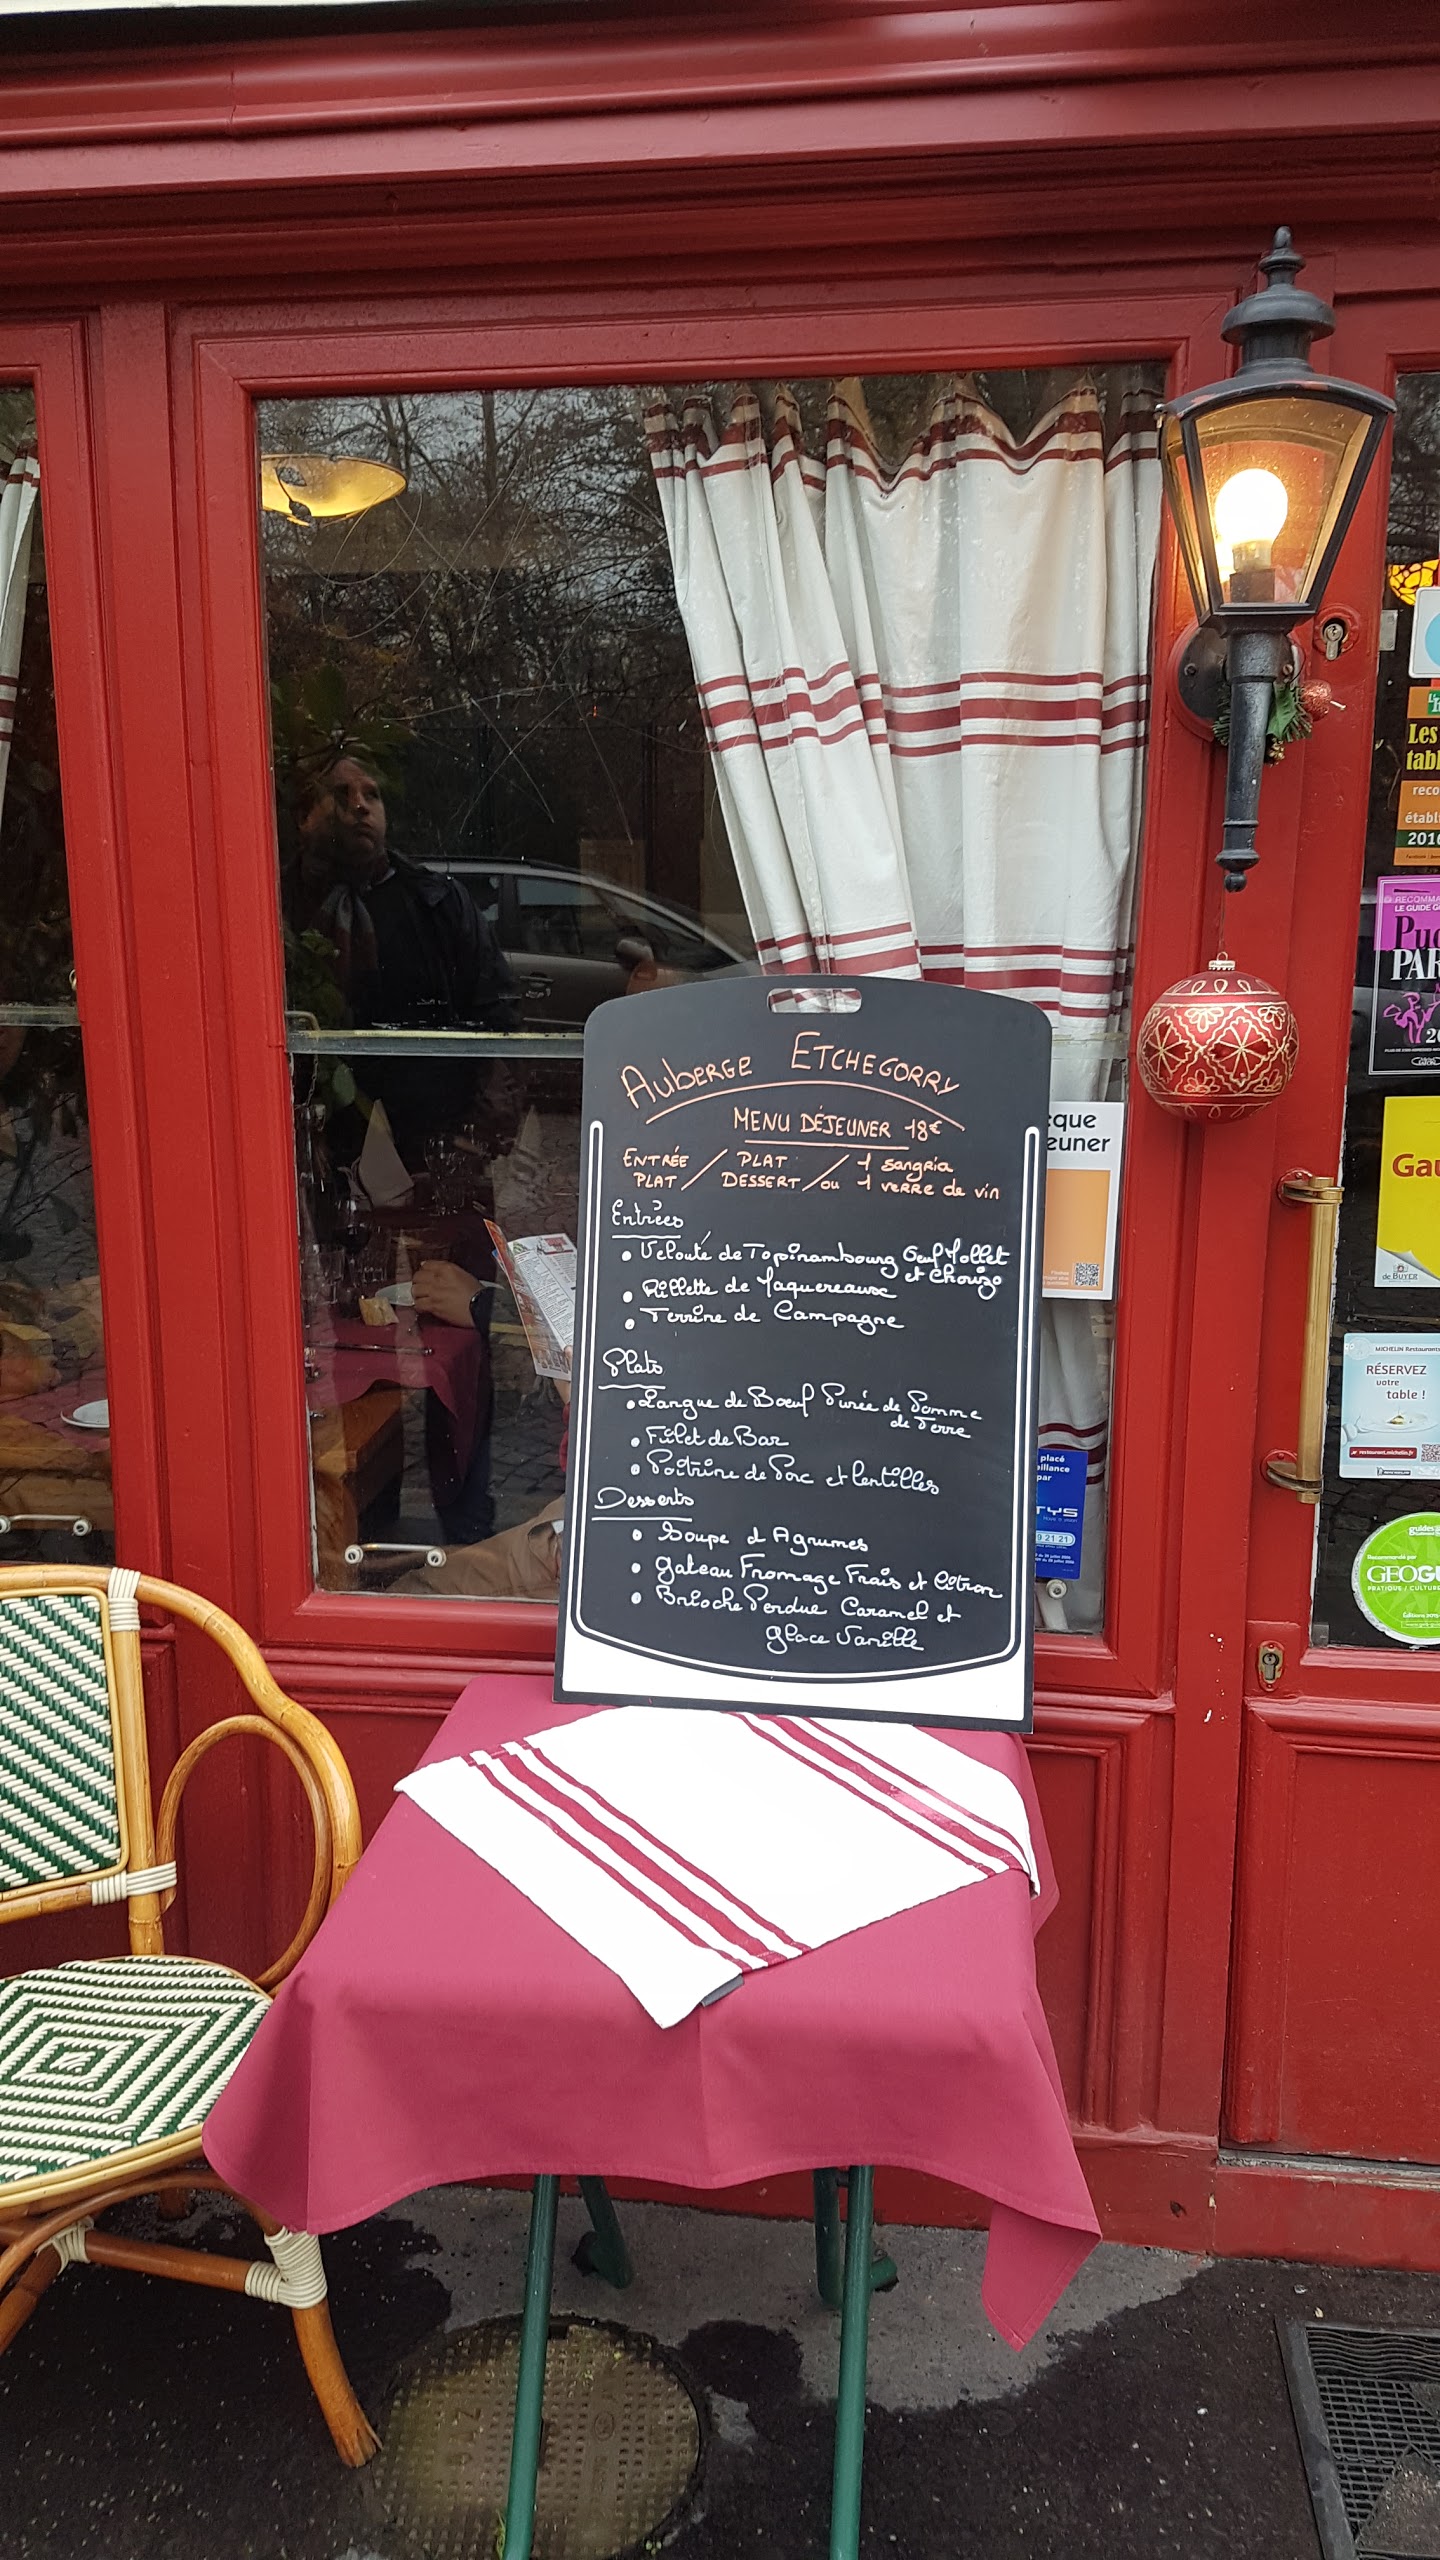 Auberge Etchegorry
Menu Déjeuner 18€
Entrée / Plat / 1 sangria
Plat / Dessert / ou 1 verre de vin
Entrées
• Velouté de Topinambourg Oeuf Mollet
et Chorizo
• Rillette de Maquereaux
• Terrine de Campagne
Plats
• Langue de Bœuf Purée de Pomme
de Terre
• Filet de Bar
• Poitrine de Porc et lentilles
Desserts
• Soupe d Agrumes
• Gateau Fromage Frais et Citron
• Brioche Perdue Caramel et
Glace Vanille
que
euner
placé
par
TYS
9 21 21
Les
tabl
reco
établi
2016
RECOMMA
LE GUIDE G
Pu
PAR
20
Gau
de BUYER
MICHELIN Restaurants
RÉSERVEZ
votre
table !
restaurant.michelin.fr
guides
Recommandé par
GEOGU
PRATIQUE / CULTURE